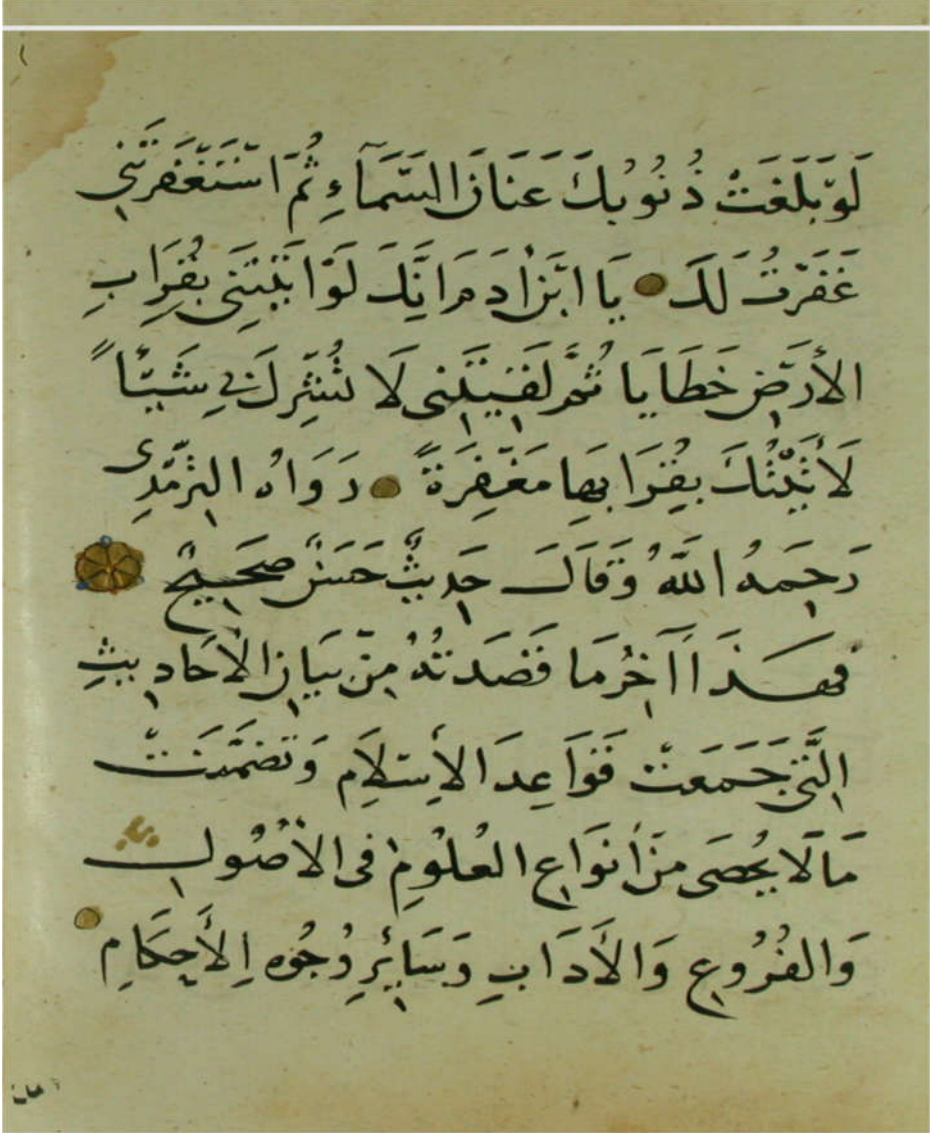 لَوْ بَلَغَتْ ذُنُوبُكَ عَنَانَ السَّمَآءِ ثُمَّ اسْتَغْفَرْتَنِي
غَفَرْتُ لَكَ يَا ابْنَ اٰدَمَ اِنَّكَ لَوْ اَتَيْتَنِي بِقُرَابِ
الأَرْضِ خَطَايَا ثُمَّ لَقِيتَنِى لَا تُشْرِكُ بِي شَيْئًا
لَأَتَيْتُكَ بِقُرَابِهَا مَغْفِرَةً رَوَاهُ التِّرْمِذِى
رَحِمَهُ اللَّهُ وَقَالَ حَدِيثٌ حَسَنٌ صَحِيحٌ
فَهَذَا اٰخِرُ مَا قَصَدْتُهُ مِنْ بَيَانِ الْأَحَادِيثِ
الَّتِي جَمَعَتْ قَوَاعِدَ الْإِسْلَامِ وَتَضَمَّنَتْ
مَا لَا يُحْصَى مِنْ أَنْوَاعِ الْعُلُومِ فِى الْأُصُولِ
وَالْفُرُوعِ وَالْأَدَابِ وَسَائِرِ وُجُوهِ الْأَحْكَامِ